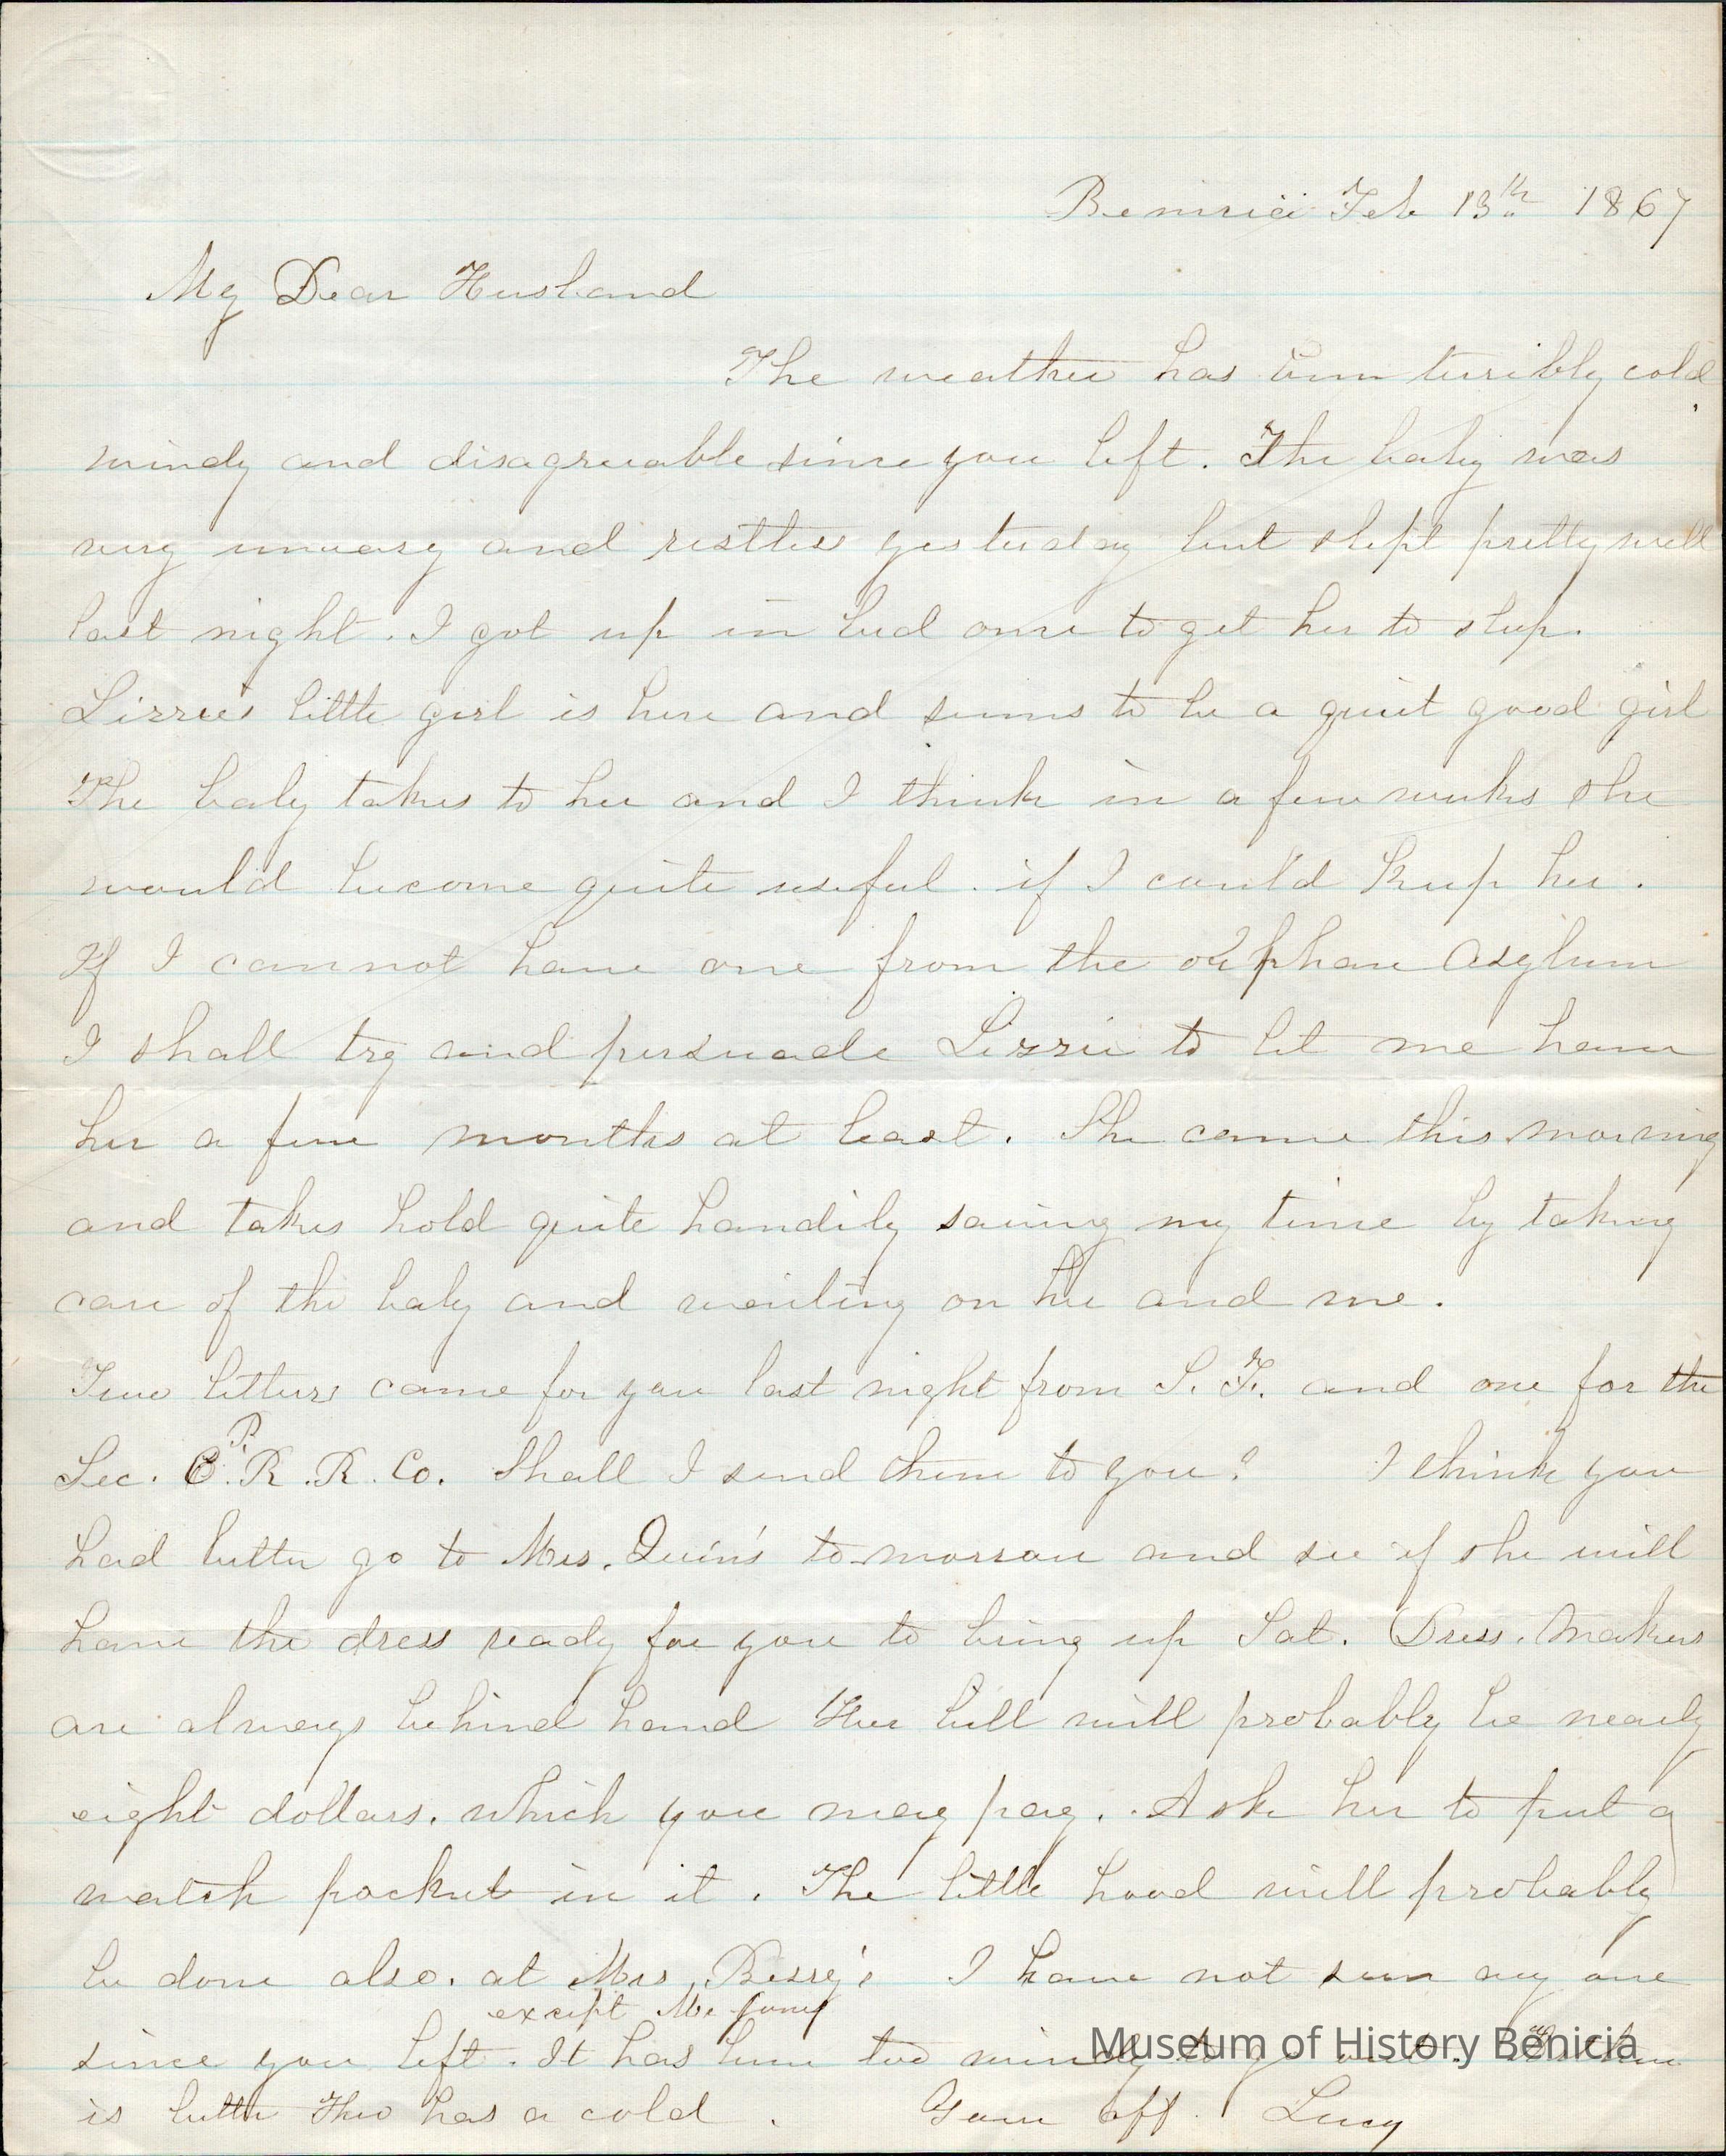 Benicia Feb 13th 1867
My Dear Husband
The weather has been terribly cold
windy and disagreeable since you left. The baby was
very uneasy and restless yesterday but slept pretty well
last night. I got up in bed once to get her to sleep.
Lizzie's little girl is here and seems to be a quiet good girl
The baby takes to her and I think in a few weeks she
would become quite useful. if I could keep her.
If I cannot have one from the orphan Asylum
I shall try and persuade Lizzie to let me have
her a few months at least. She came this morning
and takes hold quite handily saving my time by taking
care of the baby and waiting on her and me.
Two letters came for you last night from S. F. and one for the
Sec. C. P. R. R. Co. Shall I send them to you? I think you
had better go to Mrs. Quin's to-morrow and see if she will
have the dress ready for you to bring up Sat. Dress. Makers
are always behind hand Her bill will probably be nearly
eight dollars. which you may pay. Ask her to put a
watch pocket in it. The little hood will probably
be done also. at Mrs. I have not seen any one
except Mr
since you left. It has been too windy to go out.
is better Theo has a cold. Your aff. Lucy
Museum of History Benicia